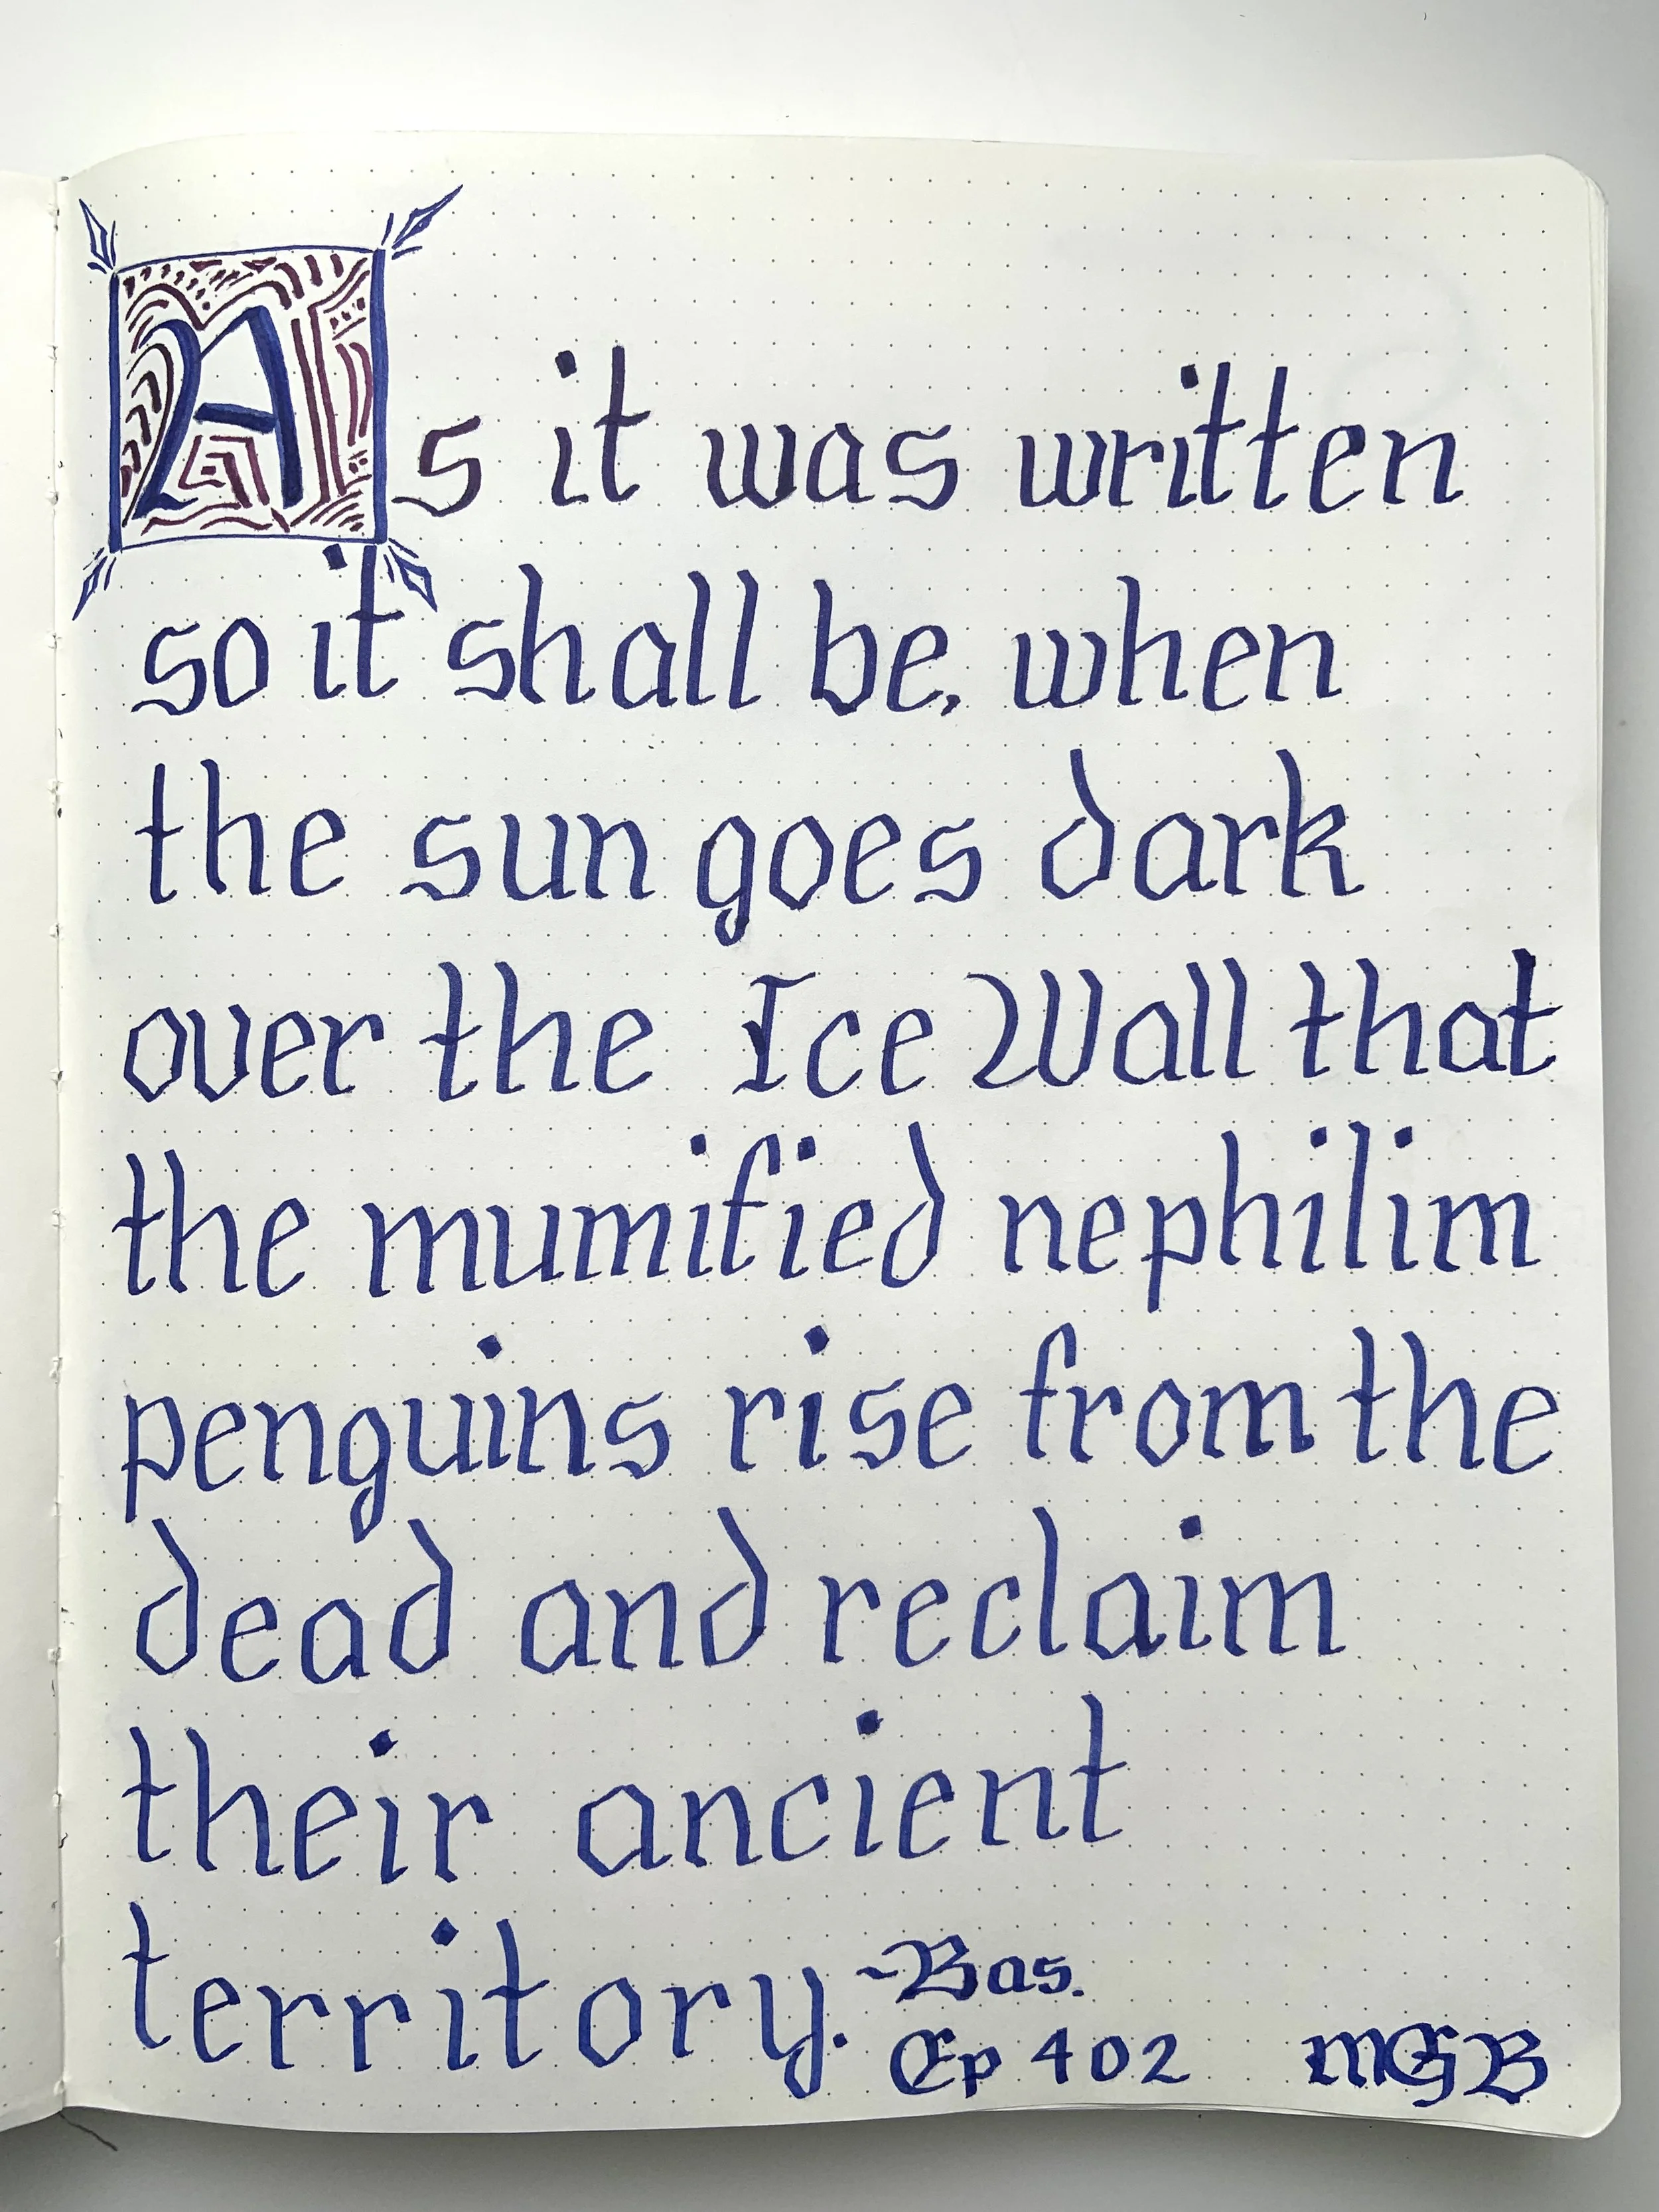 As it was written
so it shall be, when
the sun goes dark
over the Ice Wall that
the mumified nephilim
penguins rise from the
dead and reclaim
their ancient
territory. ~Bas.
Ep 402 MGB